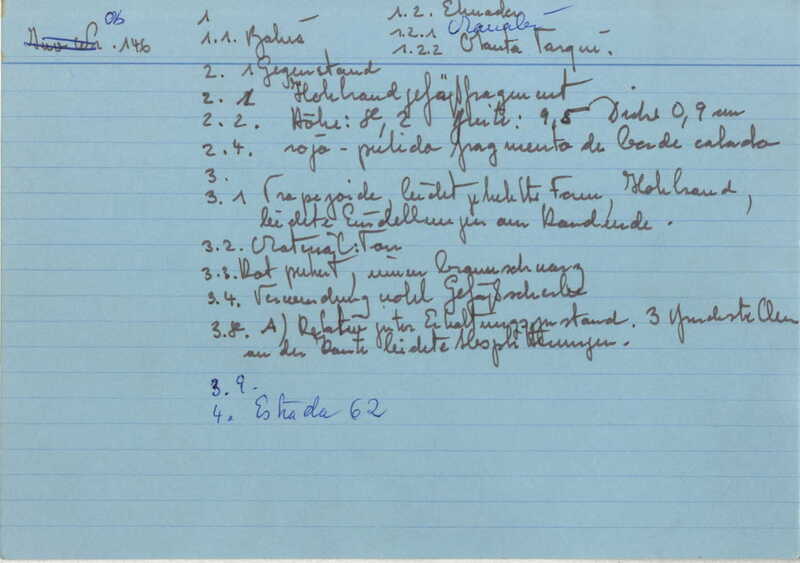 Ob
146
1
1.1. Bahia
1.2. Ekuador
1.2.1 Manabi
1.2.2 Manta Tarqui.
2. 1 Gegenstand
2. 2 Hohlrandgefäßfragment
2. 2. Höhe: 8,2 Breite: 9,5 Dicke 0,9 cm
2.4. rojo - pulido fragmento de borde calado
3.
3. 1 Trapezoide, leicht gekehlte Form, Hohlrand,
leichte Eindellungen am Randende.
3.2. Material: Ton
3.3. Rot poliert, innen braunschwarz
3.4. Verwendung wohl Gefäßscherbe
3.8. A) Relativ guter Erhaltungszustand. 3
an der Kante leichte Absplitterungen.
3. 9.
4. Estrada 62